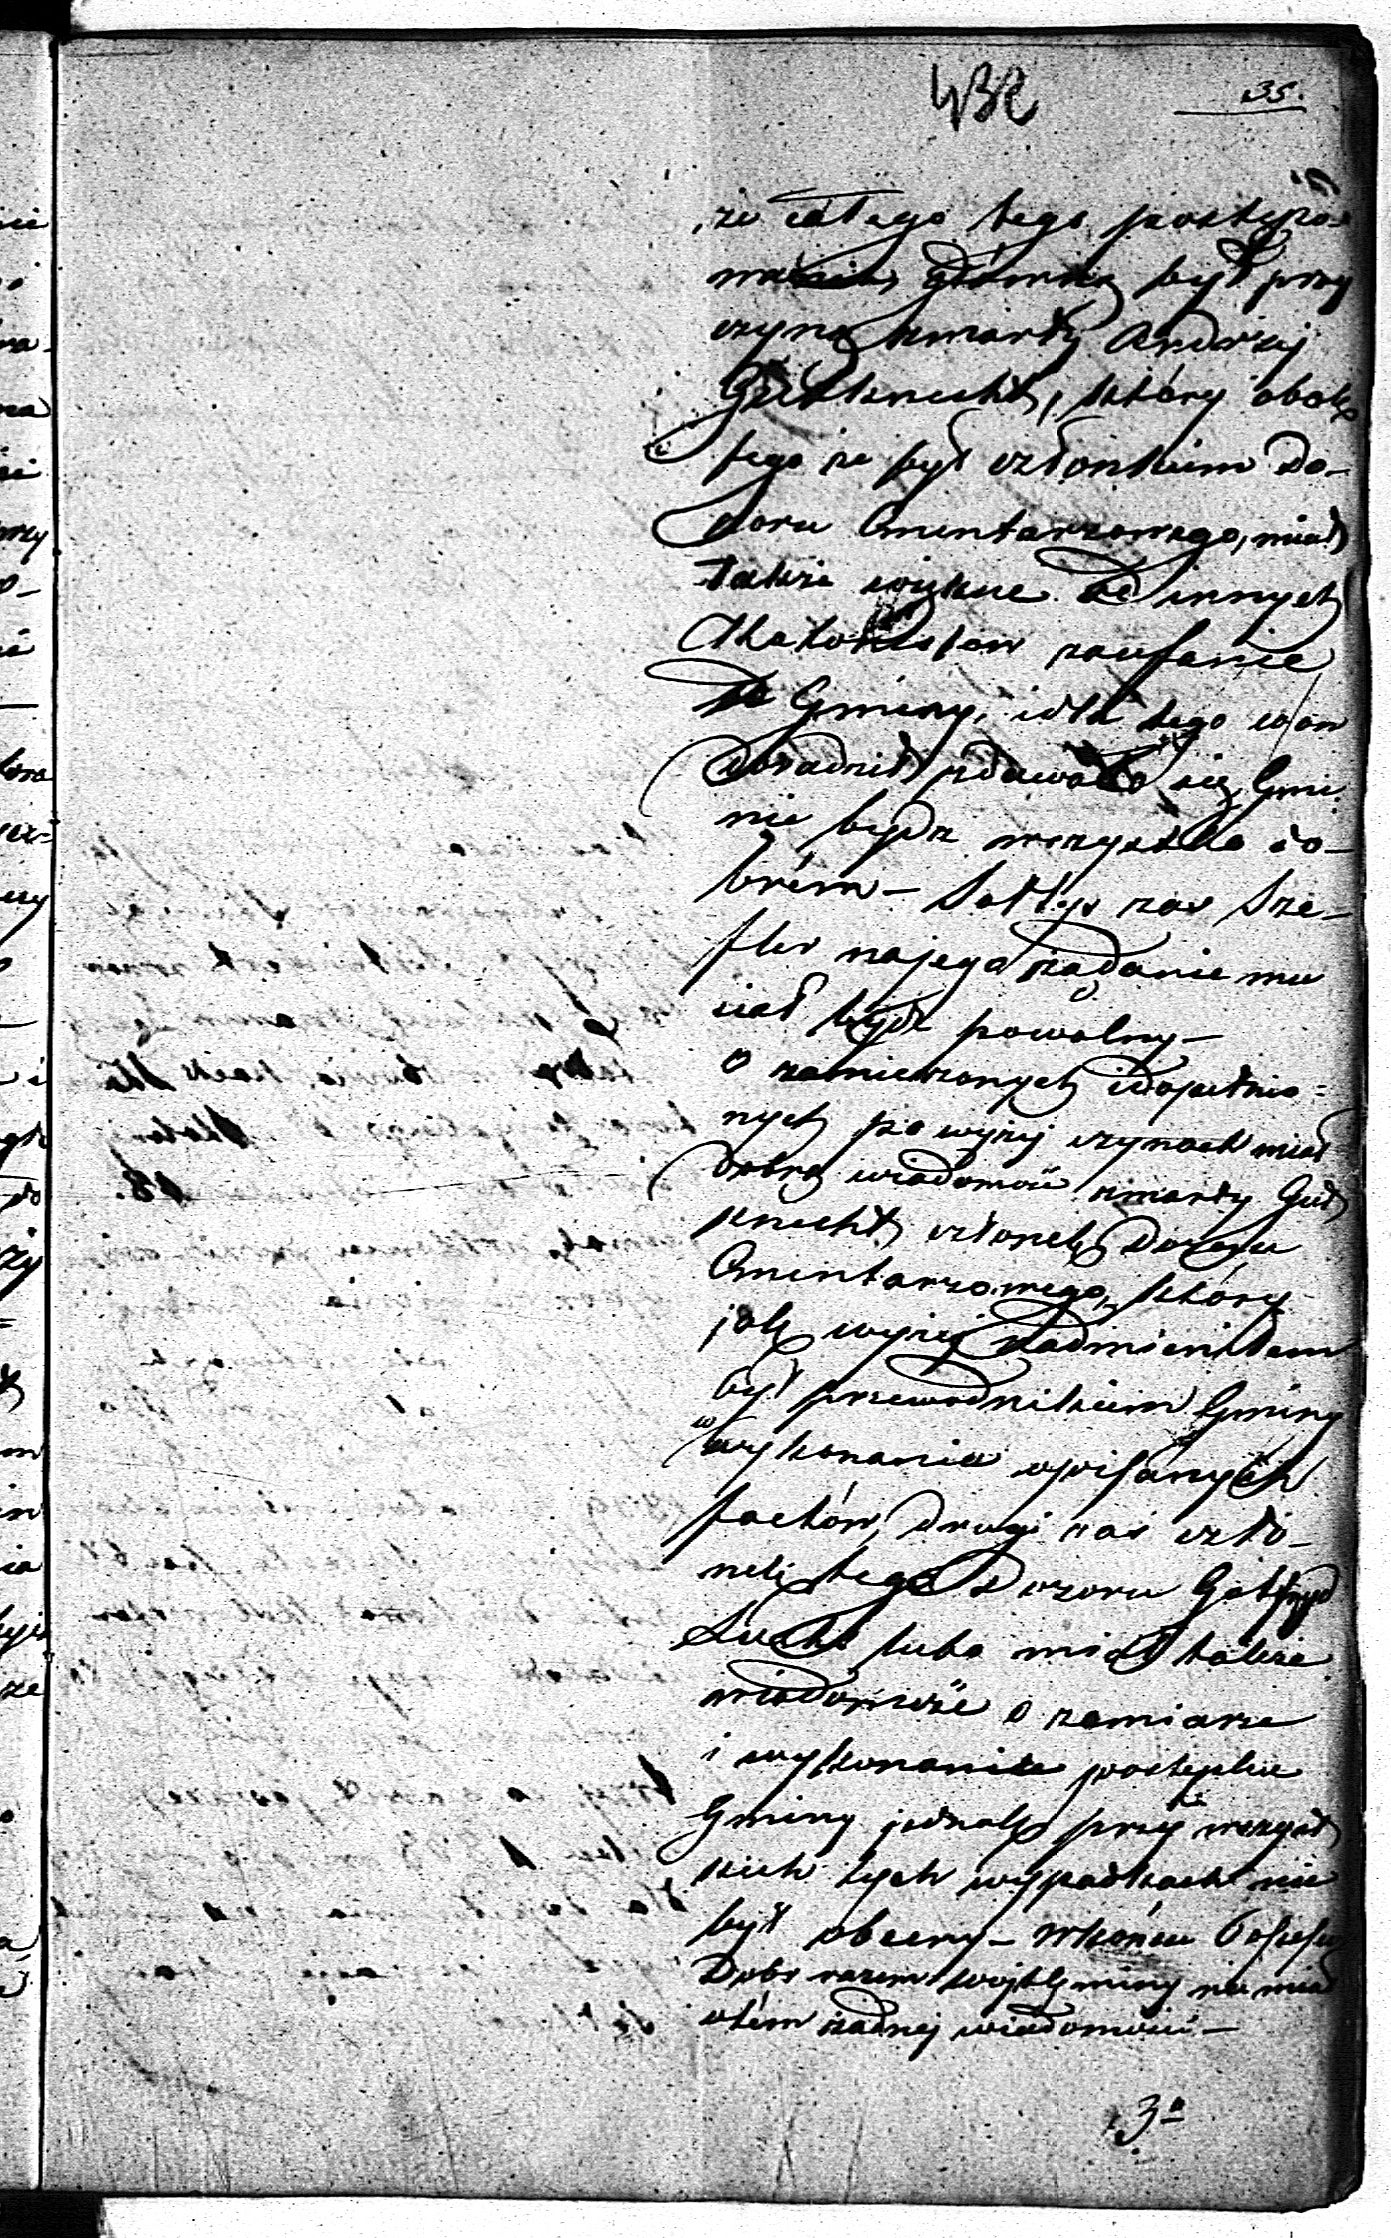 432
35.
że całego tego postępo-
wania główną był przy
czyną zmarły Andrzej
Gutknecht, który obok
tego że był członkiem Do-
zoru Cmentarzowego, miał
także większe od innych
Kolonistów zaufanie
w Gminy, i dla tego co on
doradził zdawało się Gmi
nie bydz wszystko do-
brém – Sołtys zas Sze-
fler najego żądanie mu
siał bydź powolny –
O zamierzonych i dopełnio=
nych powyżej czynach miał
dobrą wiadomość zmarły Gut
knecht członek Dozoru
Cmentarzowego, który
jak wyżej nadmieniłem
był przewodnikiem Gminy
w wykonaniu opisanych
factów, drugi zaś czło-
nek tego Dozoru Gotfryd
lubo miał także
wiadomość o zamiarze
i wykonaniu postępku
Gminy jednak przy wszyst
kich tych wypadkach nie
był obecny – wkońcu
Dobr razem wójt Gminy nie miał
otém żadnej wiadomości –
3º